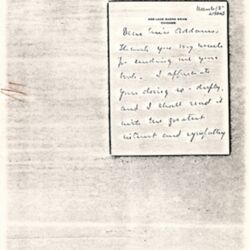 Dear Miss Addams:
Thank you very much
for sending me your
book. I appreciate
your doing so - deeply,
and I shall read it
with the greatest
interest and sympathy